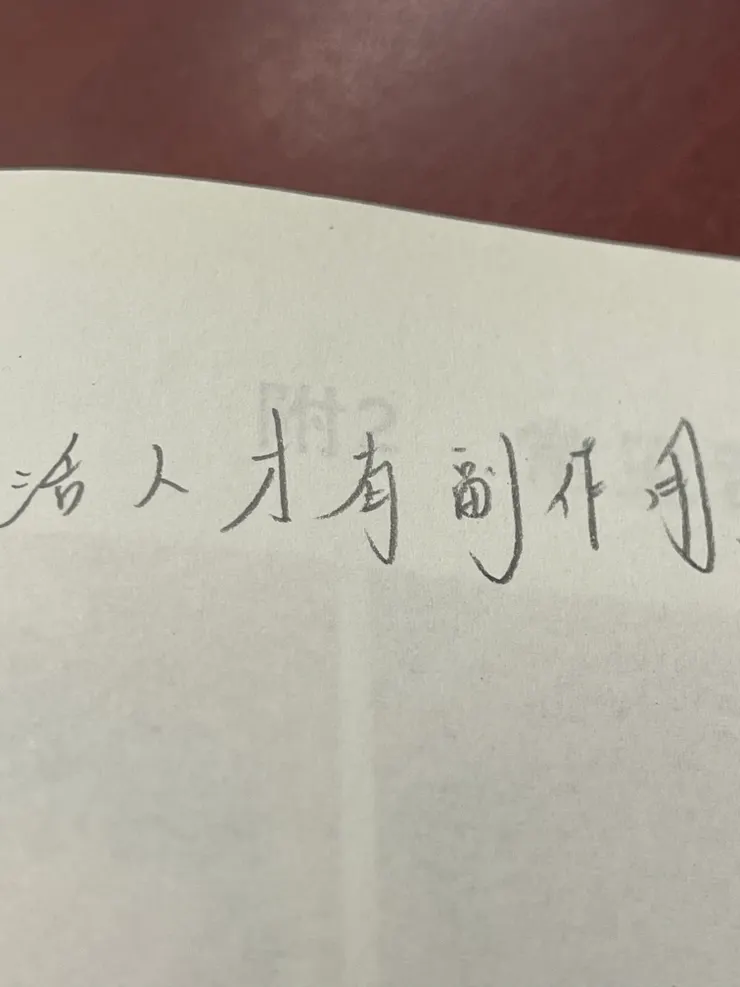 活人才有副作用